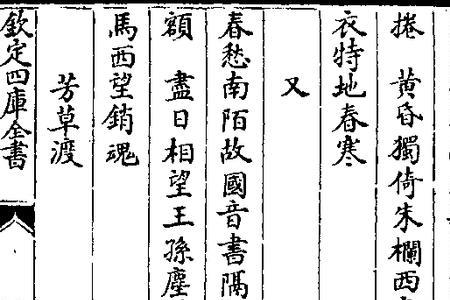 捲　黄昏獨倚朱欄西
衣特地春寒
又
春愁南陌故國音書隔
額　盡日相望王孫塵
馬西望銷魂
芳草渡
欽定四庫全書